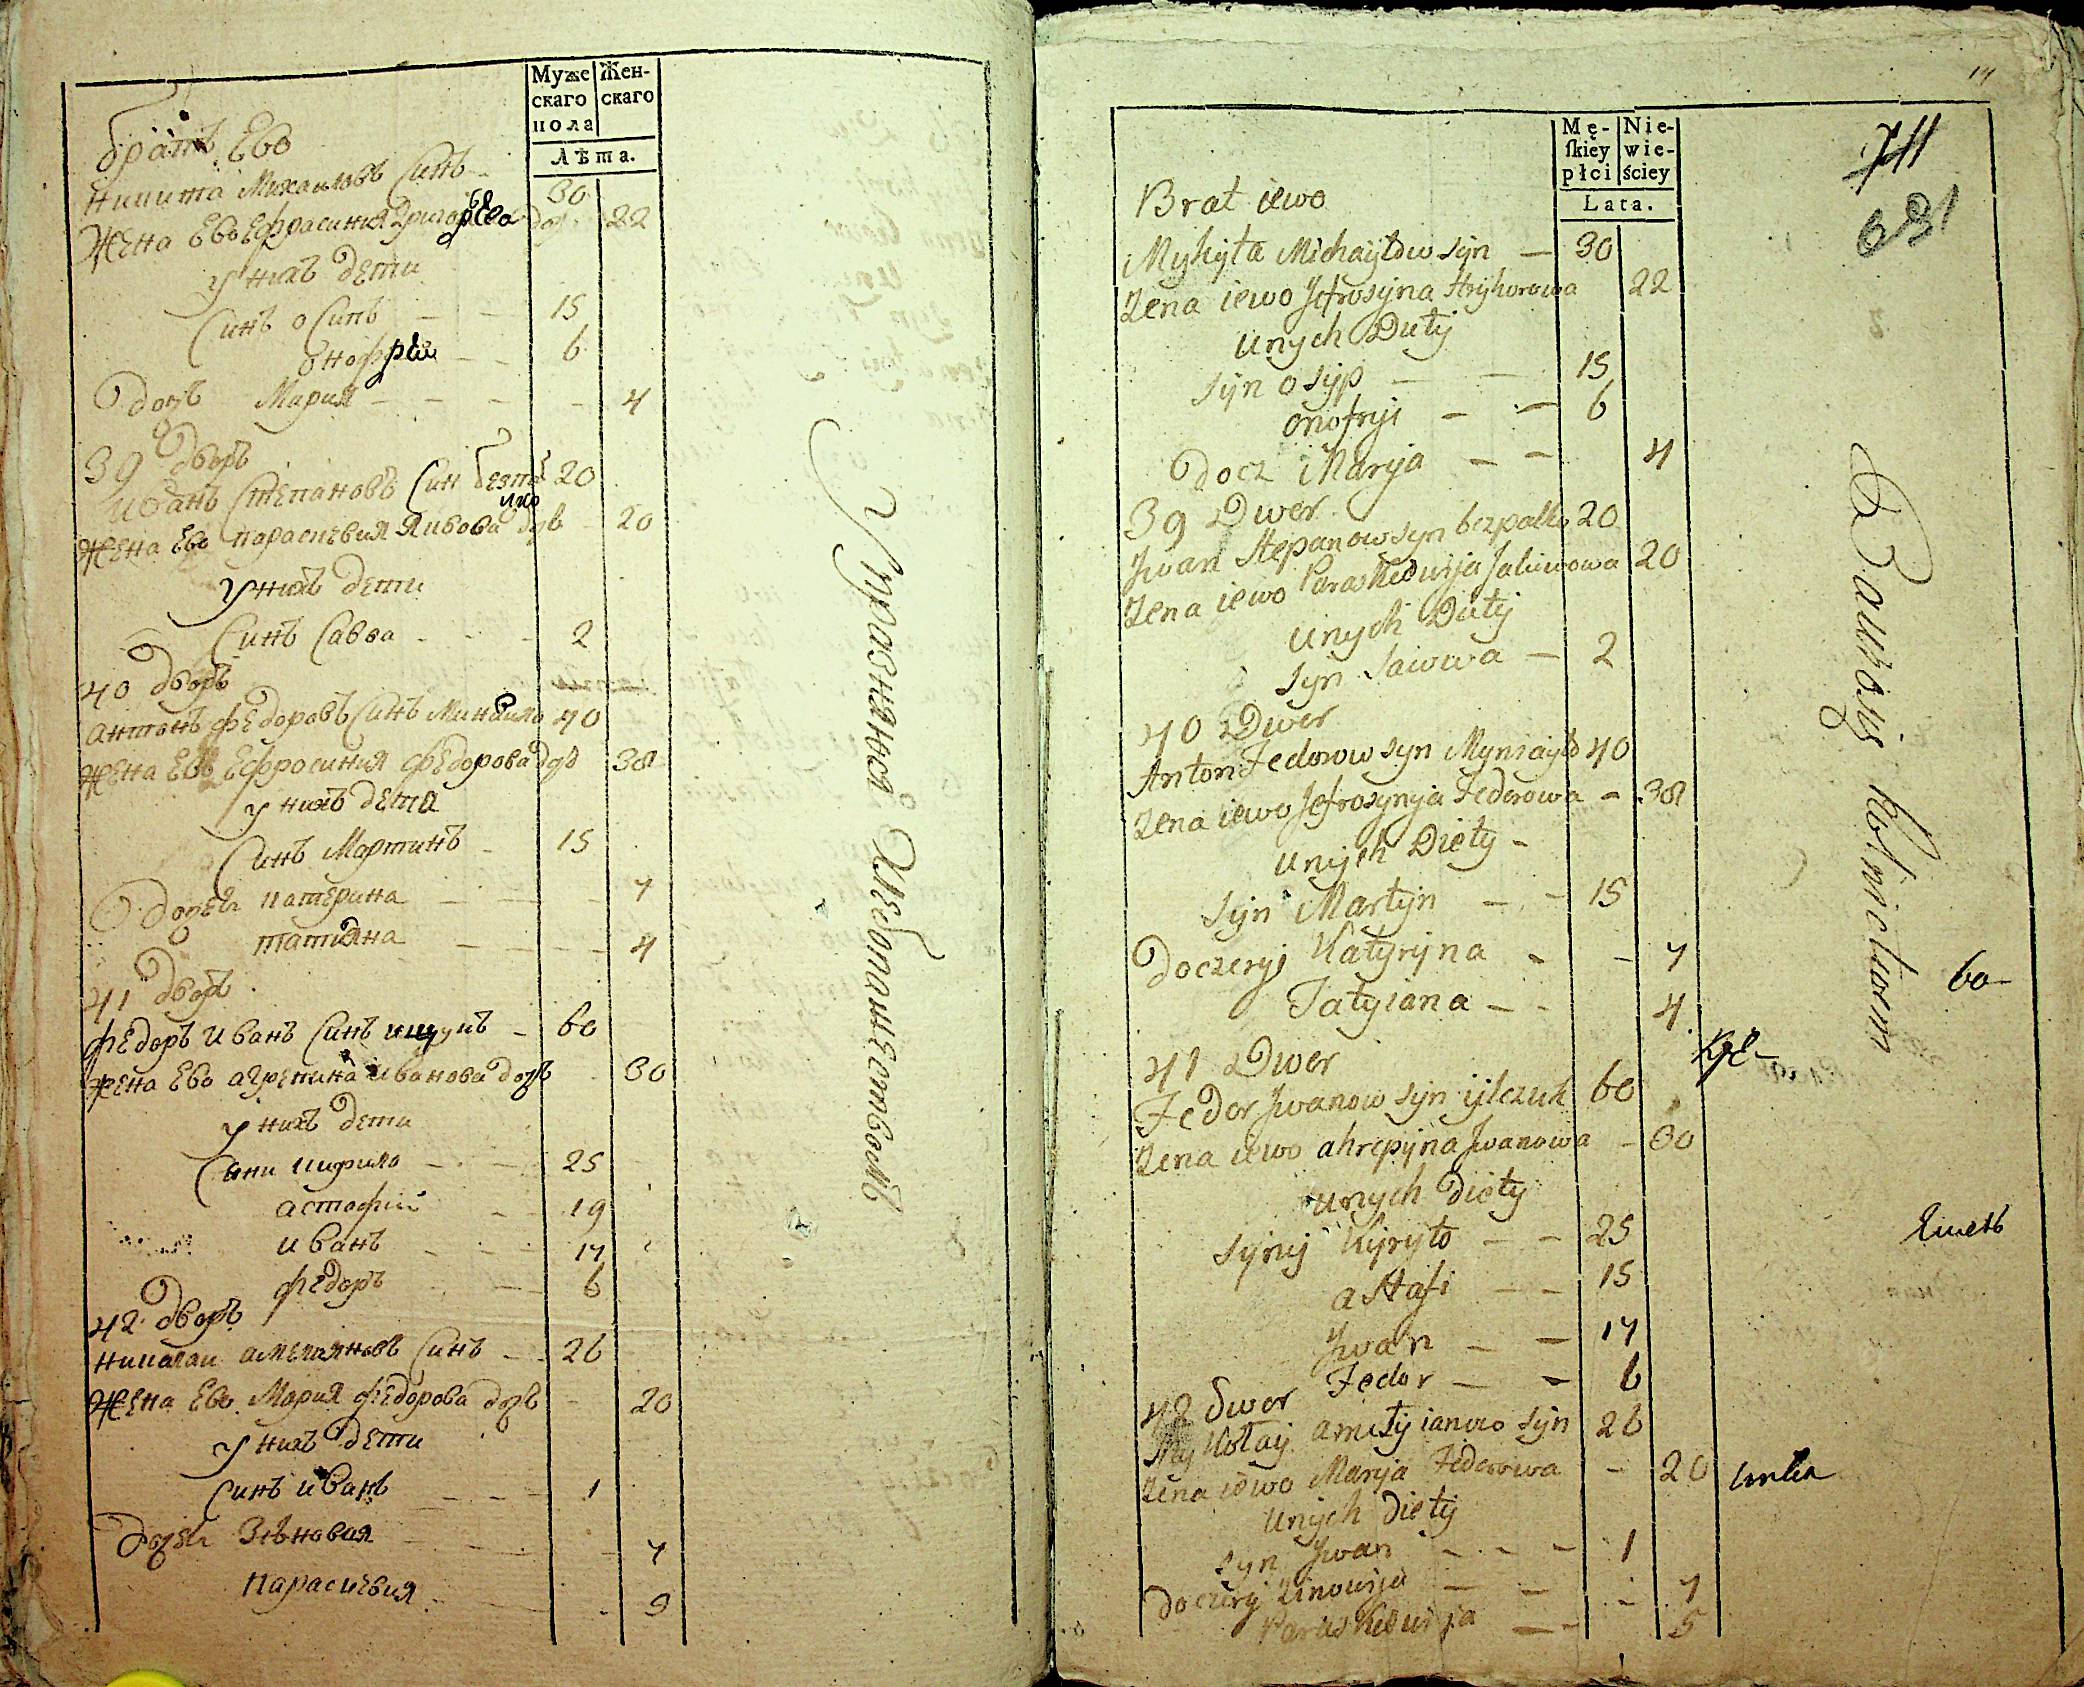 Муже
скаго
пола
Жен-
скаго
Лѣта.
братъ Ево
Никита Михаиловъ Синъ 30
Жена Ево Ефрасиния Григорьева доч. 22
У нихъ дети
Синъ осипъ 15
онофрѣй 6
дочь Мария 4
39 дворъ
иванъ Степановъ Син безпалко 20
Жена Ево параскевия Яковова дочь 20
У нихъ дети
Синъ Савва 2
40 дворъ
антонъ федоровъ Синъ Минзаило 40
Жена Ево Ефросиния федорова дочь 38
У нихъ дети
Синъ Мартинъ 15
дочери катерина 7
татиана 4
41 дворъ
федоръ иванъ Синъ 60
жена Ево агрепина иванова дочь 30
У нихъ дети
Сини кирило 25
астафий 19
иванъ 17
федоръ 6
42 дворъ
николаи амелияновъ Синъ 26
Жена Ево Мария федорова дочь 20
У нихъ дети
Синъ иванъ 1
дочери Зѣновия 7
параскевия 9
Упразняжнся Хлебопашествомъ
14
711
Mę-
ſkiey
płci
Nie-
wie-
ściey
Lata.
Brat iewo
Mykyta Michayłow syn — 30
Zena iewo Jefrosyna Hryhorowa 22
unych Duty
syn osyp — — 15
onofryi — — 6
docz Marya — — 4
39 Dwer
Jwan Stepanow syn bezpalko 20
Zena iewo Paraskewija Jakiwowa 20
unych Duty
syn sawwa — 2
40 Dwer
Anton Fedorow syn Mynzayło 40
Zena iewo Jefrosynyja Federowa - 38
unych Diety -
syn Martyn — - 15
doczeryj Katyryna - - 7
Tatyiana - - 4
41 Dwer
Fedor Jwanow syn ijlczuk 60
Zena iewo ahrepyna Jwanowa - 30
unych Diety
synyj Kyryło — - 25
astafi — - 15
Jwan — — 17
Fedor — - 6
42 Dwor
Mykołay amelyianow syn 26
Zena iewo Marja Federowa - 20
unych diety
syn Jwan - - - 1
doczery Zinowija — — - 7
Paraskewija — - 5
Bawiosij Rolnictwem
60-